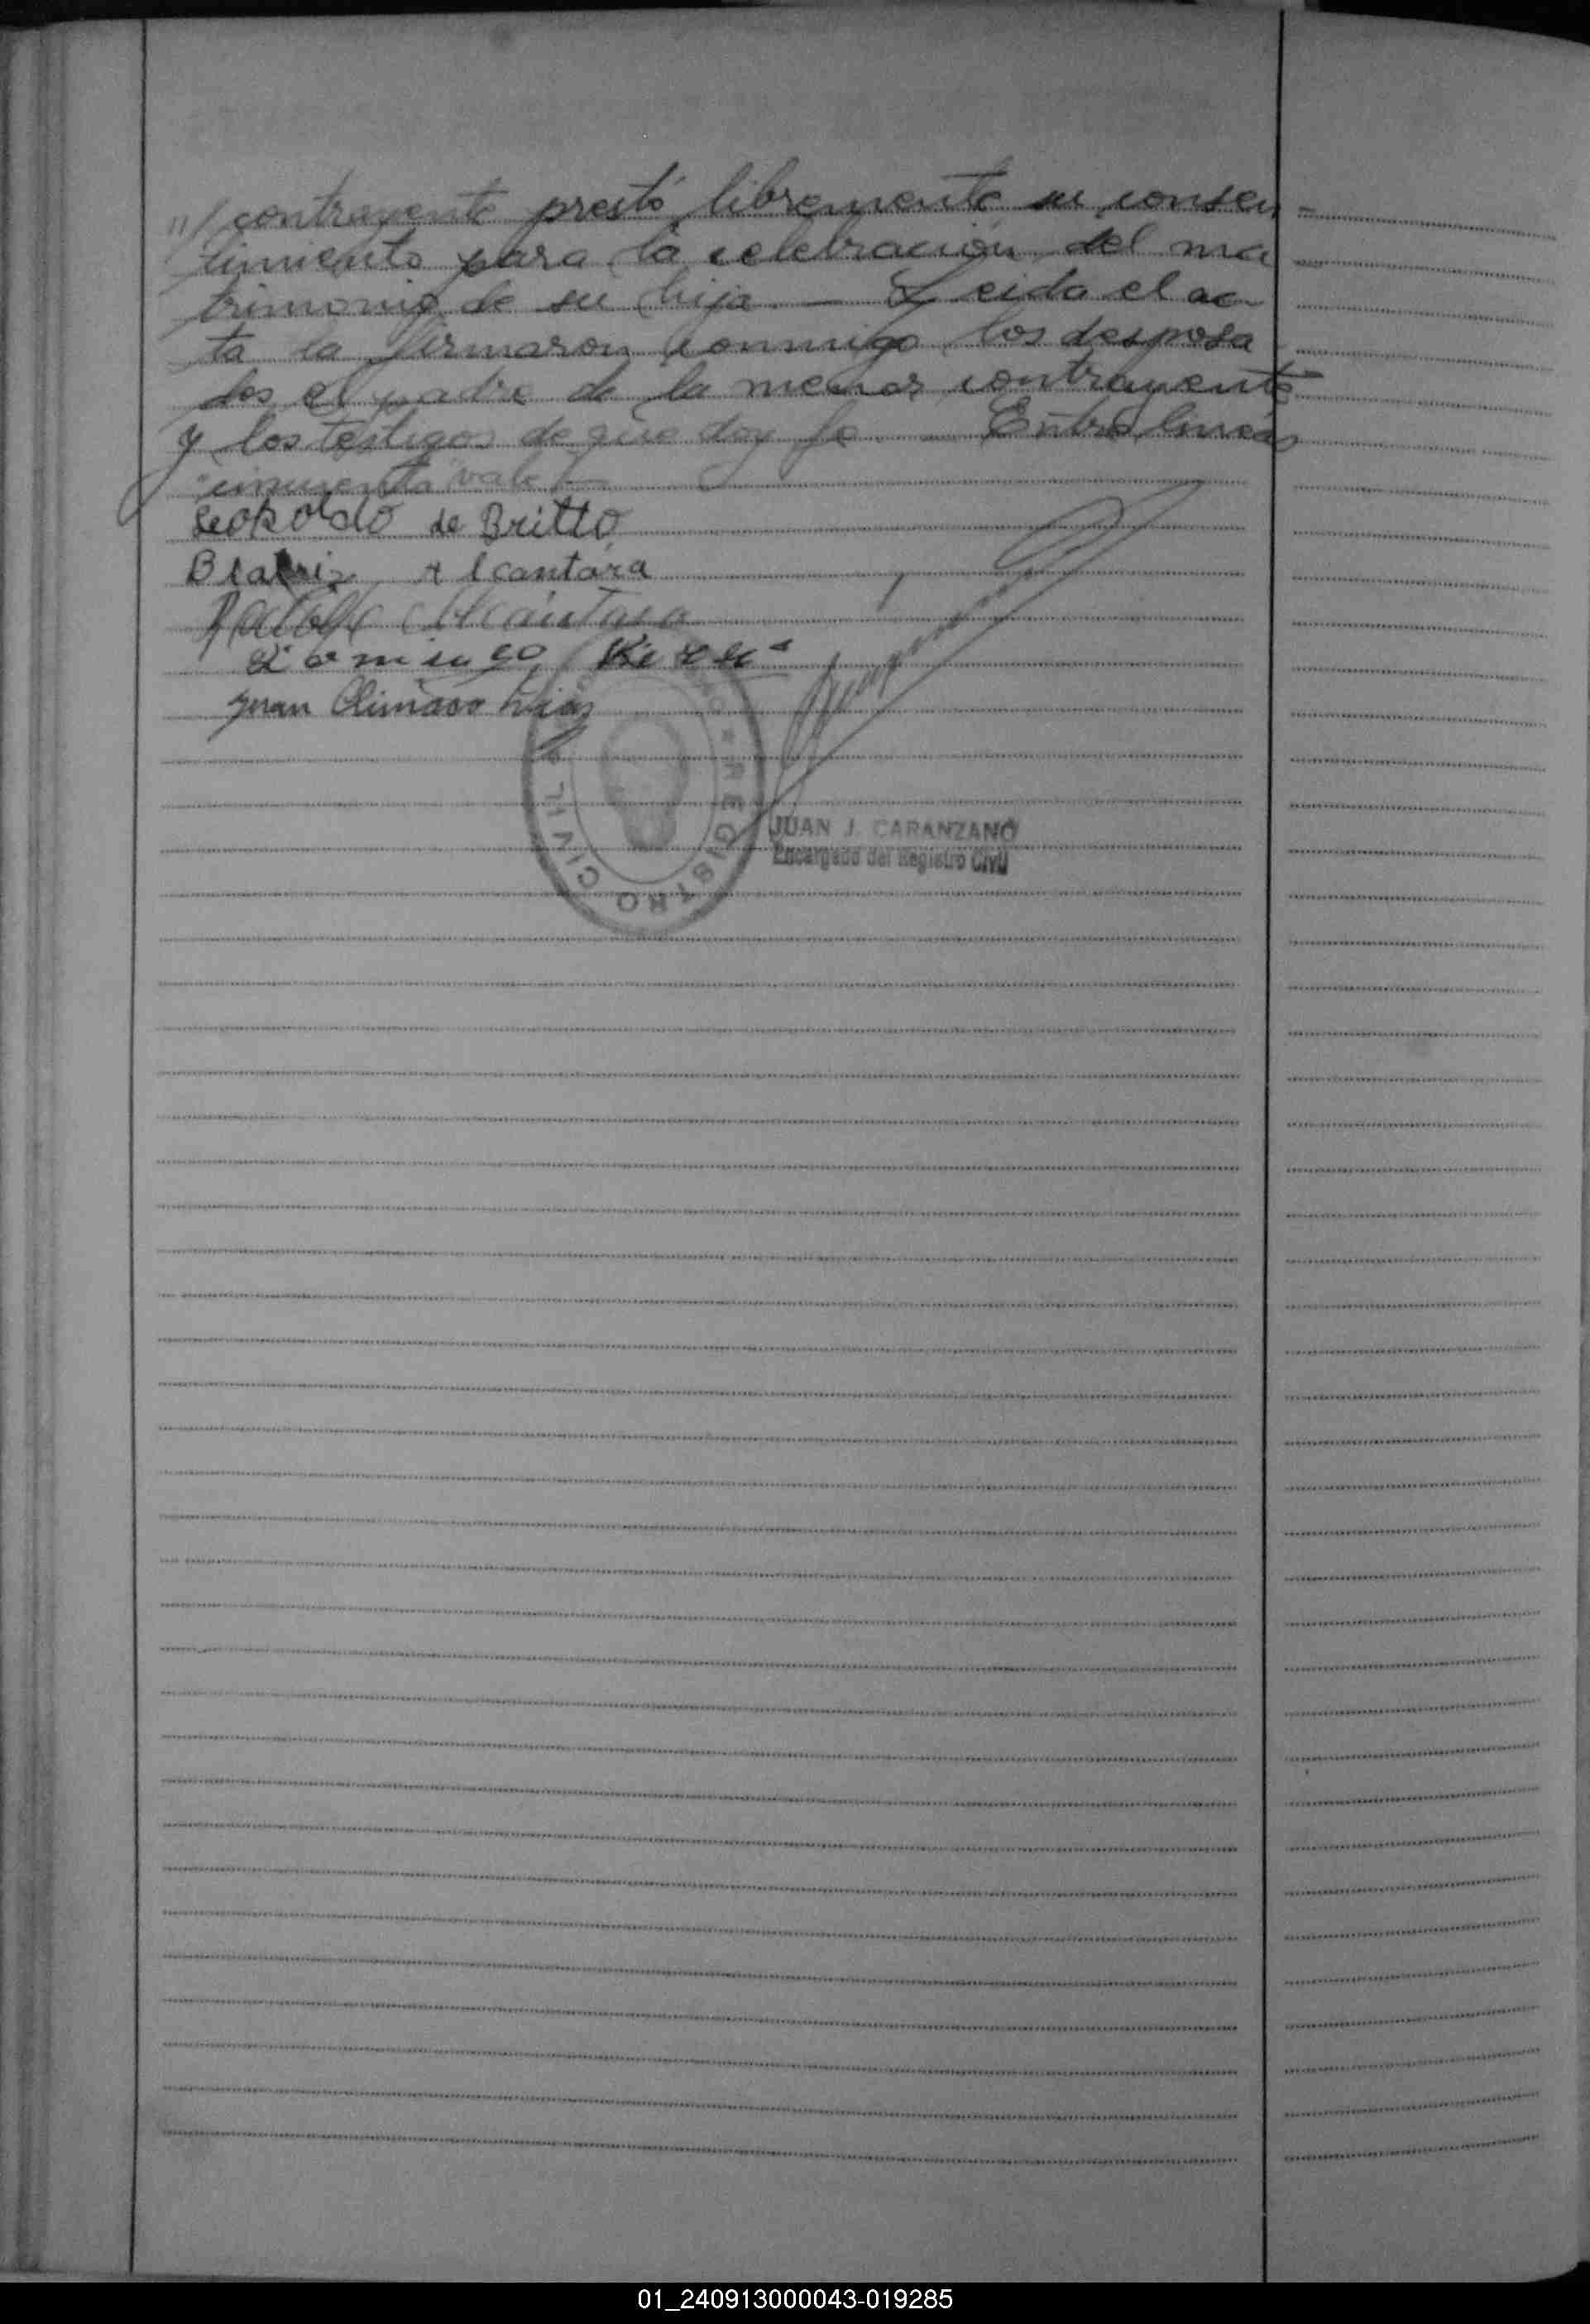 "/ contrayente prestó libremente su consen
timiento para la celebración del ma
trimonio de su hija. — Leida el ac
ta la firmaron conmigo los desposa
dos el padre de la menor contrayente
y los testigos de que doy fe. — Entre lineas
"cincuenta" vale. —
Leopoldo de Britto
Beatriz Alcantara
Alcántara
Domingo
Juan Climaco Dias
REGISTRO CIVIL
JUAN J. CARANZANO
Encargado del Registro Civil
01_240913000043-019285